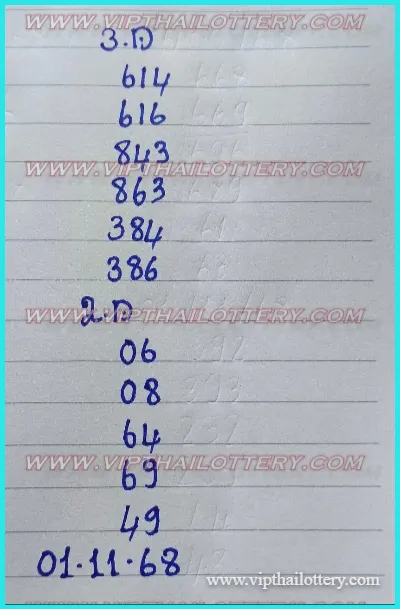 3.D
614
WWW.VIPTHAILOTTERY.COM
616
843
WWW.VIPTHAILOTTERY.COM
863
384
386
2.D
WWW.VIPTHAILOTTERY.COM
06
08
64
WWW.VIPTHAILOTTERY.COM
69
49
01.11.68
www.vipthailottery.com